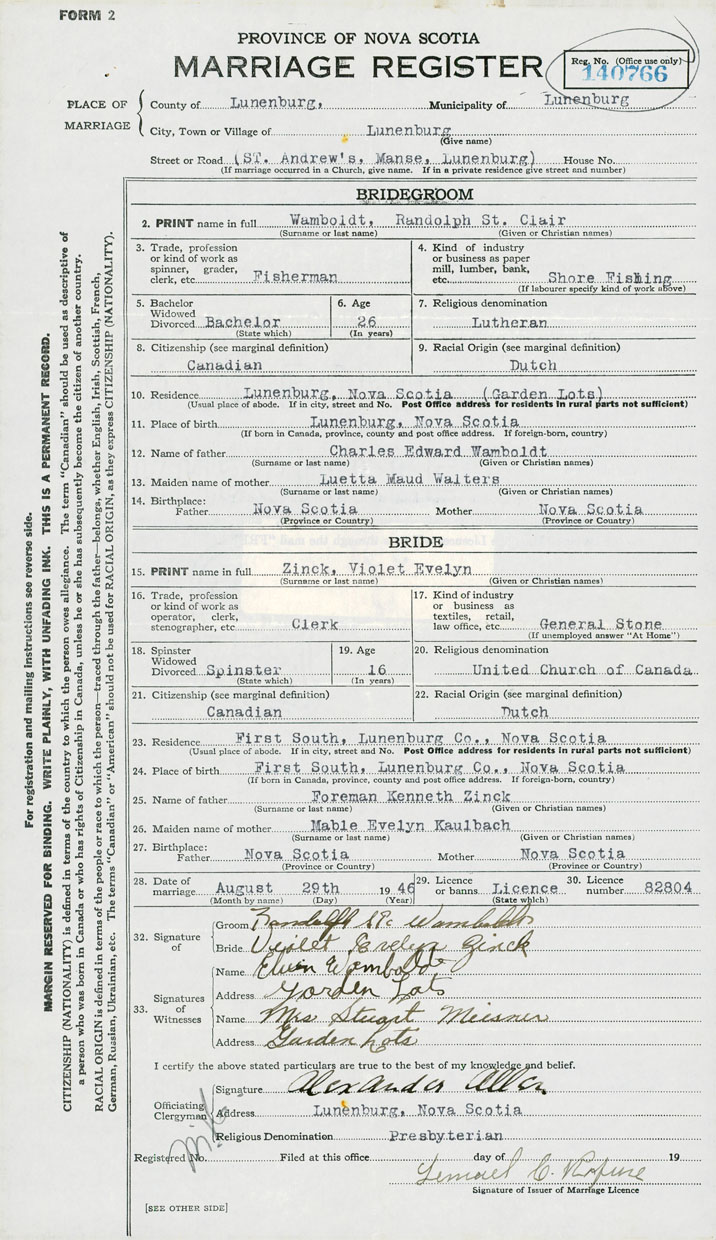 FORM 2
PROVINCE OF NOVA SCOTIA
MARRIAGE REGISTER
Reg. No. (Office use only)
140766
PLACE OF MARRIAGE
County of Lunenburg, Municipality of Lunenburg
City, Town or Village of Lunenburg
(Give name)
Street or Road (ST. Andrew's, Manse, Lunenburg) House No.
(If marriage occurred in a Church, give name. If in a private residence give street and number)
BRIDEGROOM
2. PRINT name in full Wamboldt, Randolph St. Clair
(Surname or last name) (Given or Christian names)
3. Trade, profession or kind of work as spinner, grader, clerk, etc. Fisherman
4. Kind of industry or business as paper mill, lumber, bank, etc. Shore Fishing
(If labourer specify kind of work above)
5. Bachelor Widowed Divorced Bachelor
(State which)
6. Age 26
(In years)
7. Religious denomination
Lutheran
8. Citizenship (see marginal definition)
Canadian
9. Racial Origin (see marginal definition)
Dutch
10. Residence Lunenburg, Nova Scotia (Garden Lots)
(Usual place of abode. If in city, street and No. Post Office address for residents in rural parts not sufficient)
11. Place of birth Lunenburg, Nova Scotia
(If born in Canada, province, county and post office address. If foreign-born, country)
12. Name of father Charles Edward Wamboldt
(Surname or last name) (Given or Christian names)
13. Maiden name of mother Luetta Maud Walters
(Surname or last name) (Given or Christian names)
14. Birthplace:
Father Nova Scotia Mother Nova Scotia
(Province or Country) (Province or Country)
BRIDE
15. PRINT name in full Zinck, Violet Evelyn
(Surname or last name) (Given or Christian names)
16. Trade, profession or kind of work as operator, clerk, stenographer, etc Clerk
17. Kind of industry or business as textiles, retail, law office, etc. General Stone
(If unemployed answer "At Home")
18. Spinster Widowed Divorced Spinster
(State which)
19. Age 16
(In years)
20. Religious denomination
United Church of Canada
21. Citizenship (see marginal definition)
Canadian
22. Racial Origin (see marginal definition)
Dutch
23. Residence First South, Lunenburg Co., Nova Scotia
(Usual place of abode. If in city, street and No. Post Office address for residents in rural parts not sufficient)
24. Place of birth First South, Lunenburg Co., Nova Scotia
(If born in Canada, province, county and post office address. If foreign-born, country)
25. Name of father Foreman Kenneth Zinck
(Surname or last name) (Given or Christian names)
26. Maiden name of mother Mable Evelyn Kaulbach
(Surname or last name) (Given or Christian names)
27. Birthplace:
Father Nova Scotia Mother Nova Scotia
(Province or Country) (Province or Country)
28. Date of marriage August 29th 1946
(Month by name) (Day) (Year)
29. Licence or banns Licence
(State which)
30. Licence number 82804
32. Signature of
Groom Randolph St C Wamboldt
Bride Violet Evelyn Zinck
33. Signatures of Witnesses
Name Elvin Wamboldt
Address Garden Lots
Name Mrs Stuart Meisner
Address Garden Lots
I certify the above stated particulars are true to the best of my knowledge and belief.
Officiating Clergyman
Signature Alexander Allen
Address Lunenburg, Nova Scotia
Religious Denomination Presbyterian
Registered No. Filed at this office day of 19
Lemuel C.
Signature of Issuer of Marriage Licence
[SEE OTHER SIDE]
For registration and mailing instructions see reverse side.
MARGIN RESERVED FOR BINDING. WRITE PLAINLY, WITH UNFADING INK. THIS IS A PERMANENT RECORD.
CITIZENSHIP (NATIONALITY) is defined in terms of the country to which the person owes allegiance. The term "Canadian" should be used as descriptive of
a person who was born in Canada or who has rights of Citizenship in Canada, unless he or she has subsequently become the citizen of another country.
RACIAL ORIGIN is defined in terms of the people or race to which the person—traced through the father—belongs, whether English, Irish, Scottish, French,
German, Russian, Ukrainian, etc. The terms "Canadian" or "American" should not be used for RACIAL ORIGIN, as they express CITIZENSHIP (NATIONALITY).